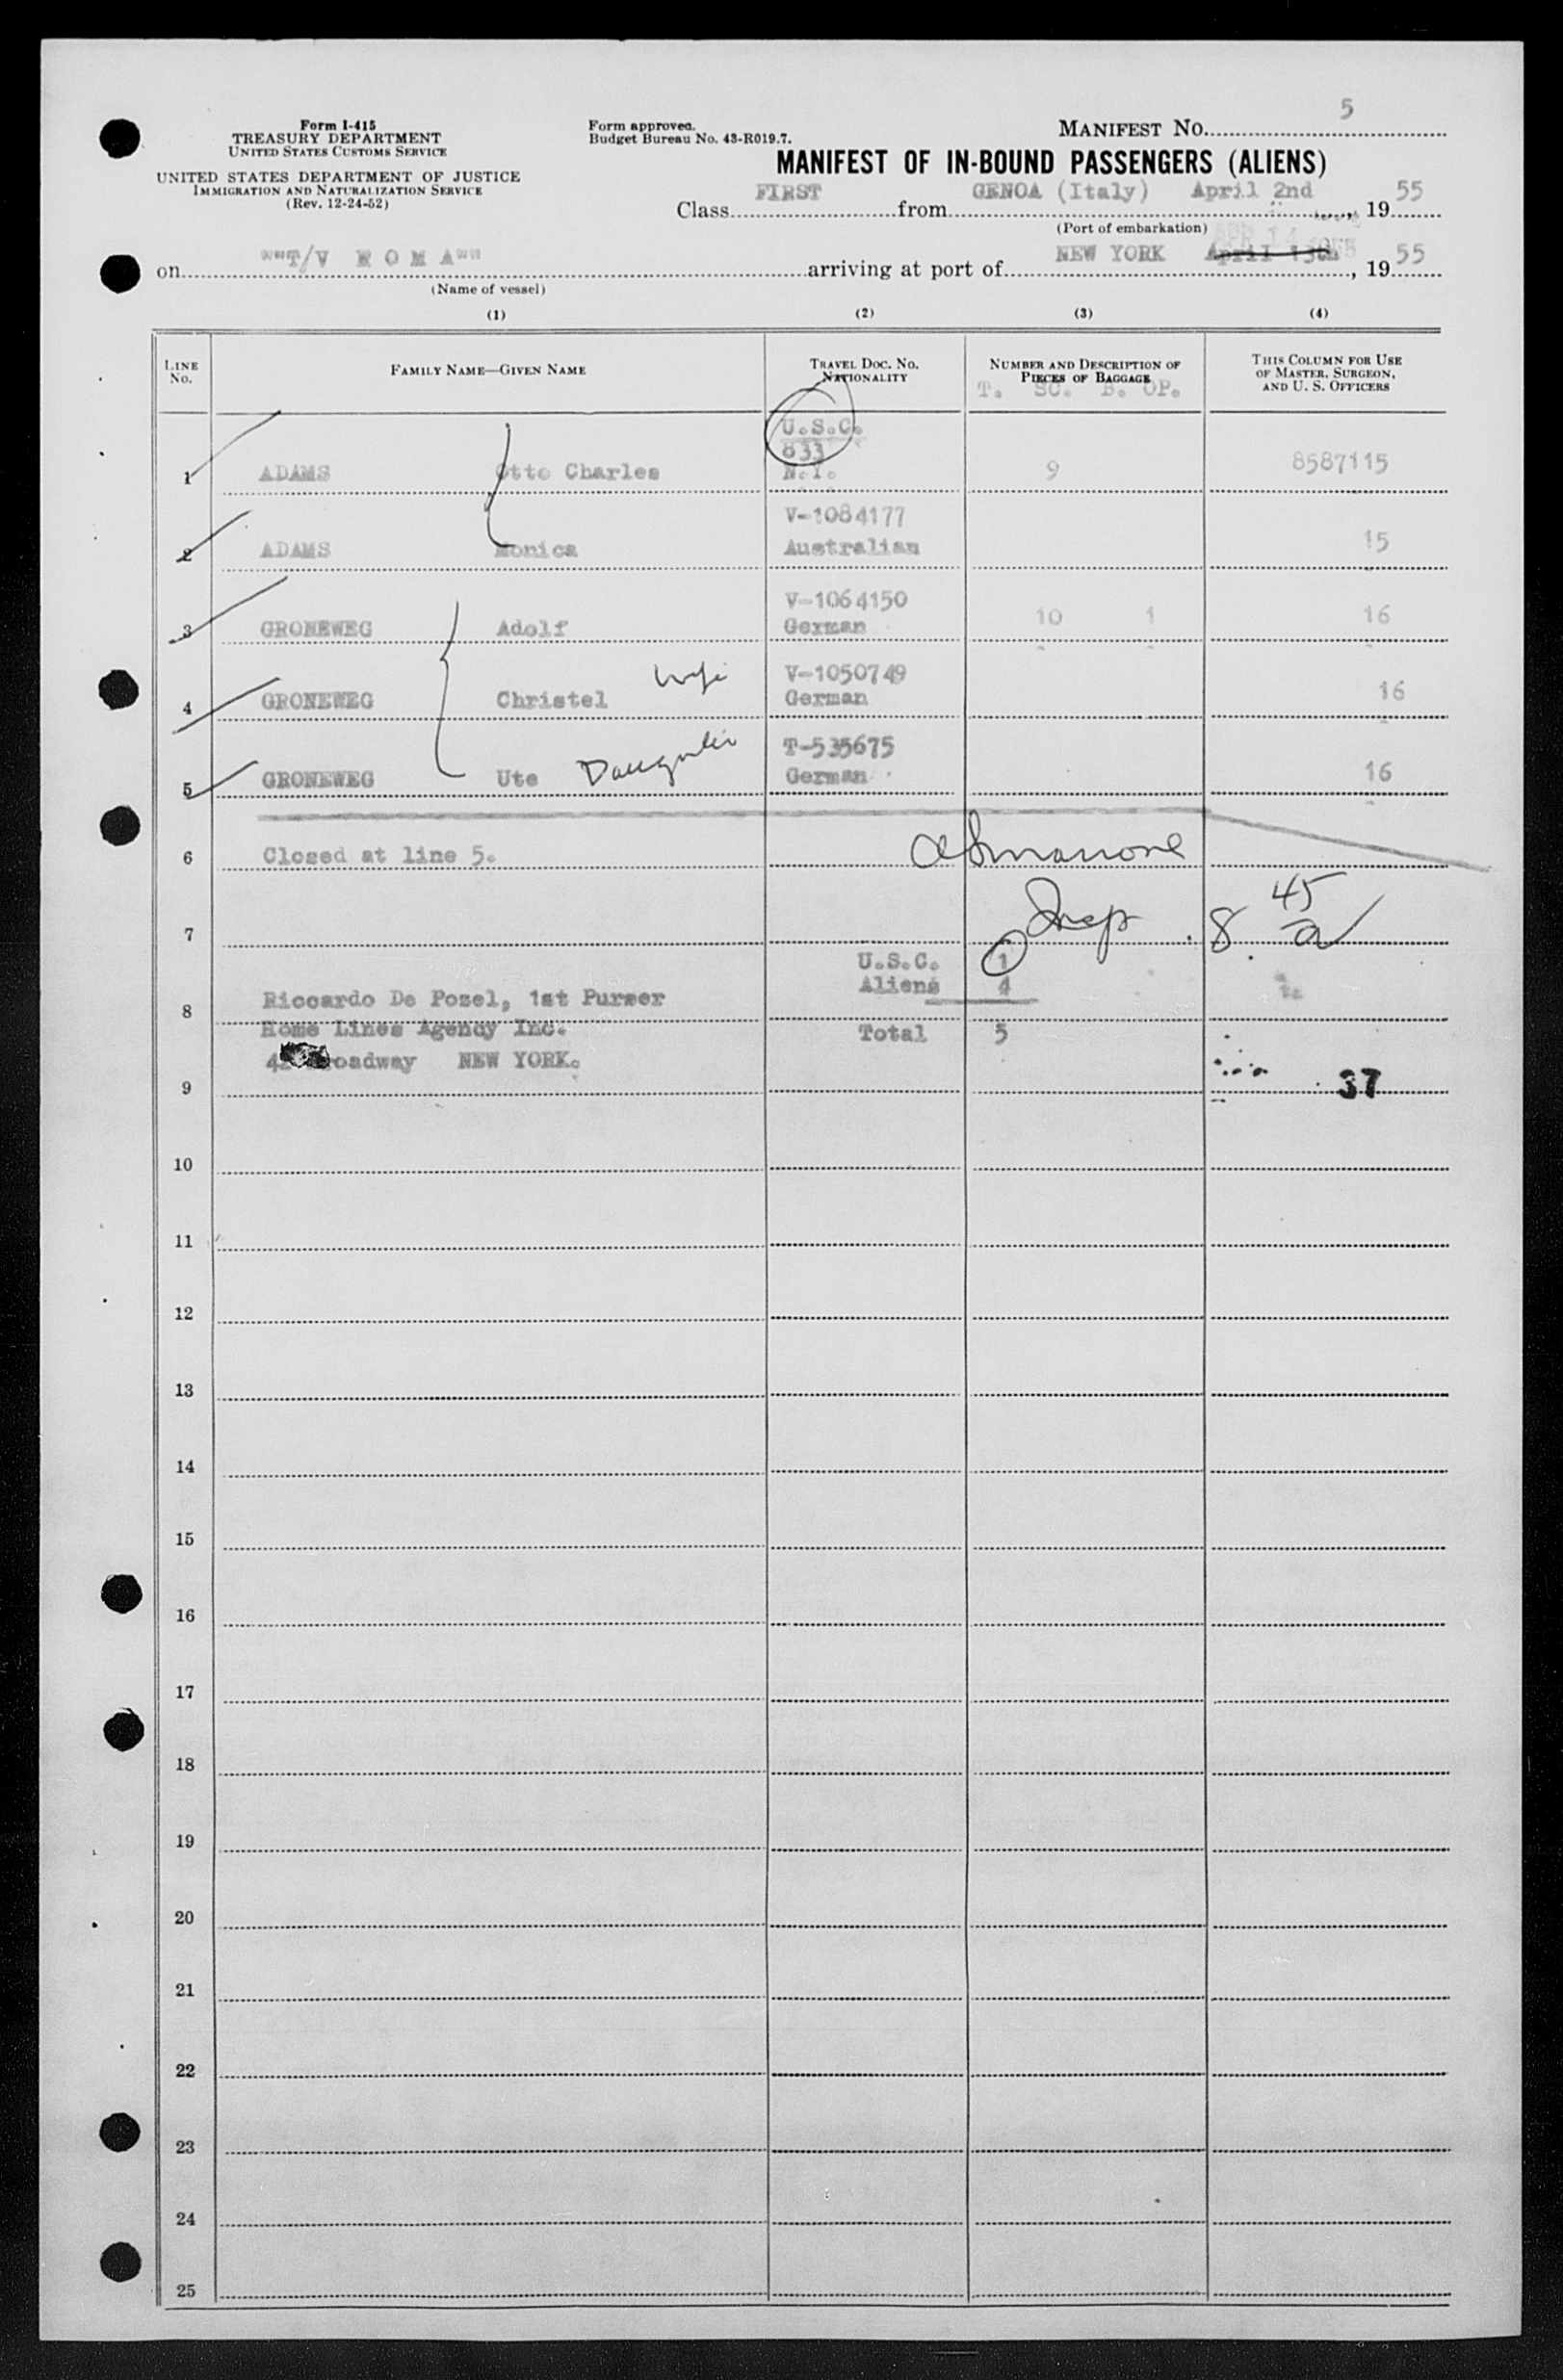 5
Form I-415
TREASURY DEPARTMENT
UNITED STATES CUSTOMS SERVICE
UNITED STATES DEPARTMENT OF JUSTICE
IMMIGRATION AND NATURALIZATION SERVICE
(Rev. 12-24-52)
Form approved.
Budget Bureau No. 43-R019.7.
MANIFEST No.
MANIFEST OF IN-BOUND PASSENGERS (ALIENS)
Class FIRST from GENOA (Italy) April 2nd, 1955
(Port of embarkation)
on ""T/V ROMA"" arriving at port of NEW YORK April 13th, 1955
(Name of vessel)
(1) (2) (3) (4)
LINE No. FAMILY NAME—GIVEN NAME TRAVEL DOC. No. NATIONALITY NUMBER AND DESCRIPTION OF PIECES OF BAGGAGE THIS COLUMN FOR USE OF MASTER, SURGEON, AND U. S. OFFICERS
T. SC. B. OP.
U.S.C.
833
1 ADAMS Otto Charles N.Y. 9 8587115
V-1084177
2 ADAMS Monica Australian 15
V-1064150
3 GRONEWEG Adolf German 10 1 16
V-1050749
4 GRONEWEG Christel Wife German 16
T-535675
5 GRONEWEG Ute Daughter German 16
6 Closed at line 5.
7 Insp 8 45 a
U.S.C. 1
Aliens 4
8 Riccardo De Pozel, 1st Purser
Home Lines Agency Inc. Total 5
Broadway NEW YORK.
9 37
10
11
12
13
14
15
16
17
18
19
20
21
22
23
24
25